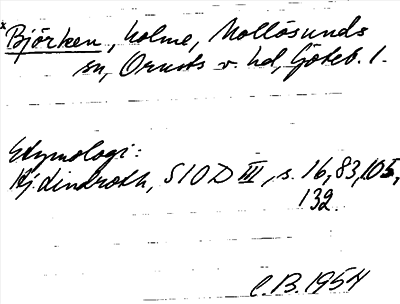 *Björken, holme, Mollösunds
sn, Orusts v. hd, Göteb. l.
Etymologi:
Hj. Lindroth, SIOD III, s. 16, 83, 105,
132.
C.B. 1954